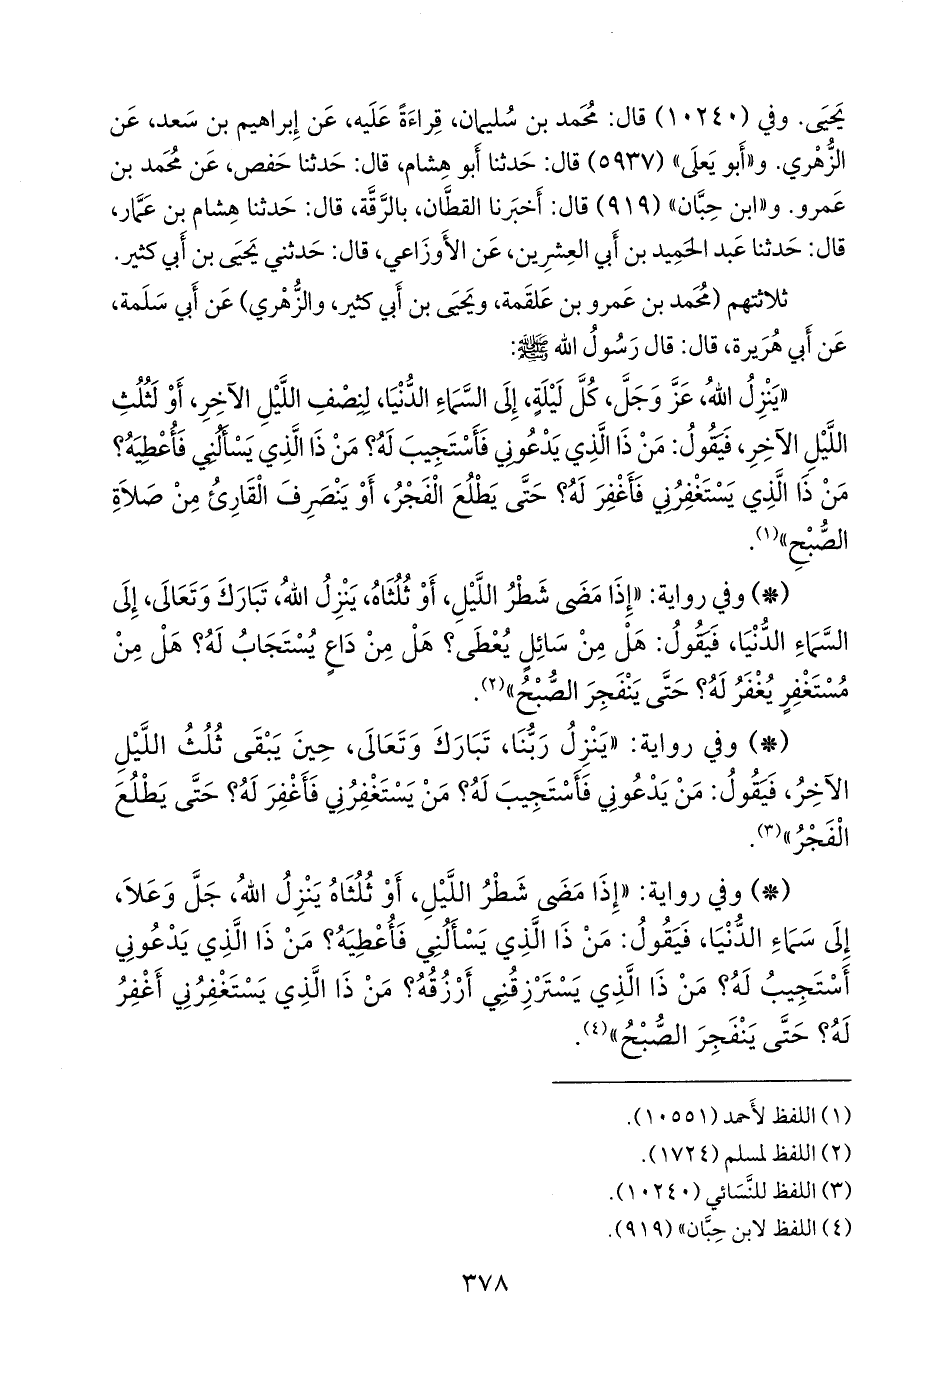 يَحيَى. وفي (١٠٢٤٠) قال: مُحمد بن سُليمان، قِراءَةً عَلَيه، عَن إِبراهيم بن سَعد، عَن
الزُّهْري. و«أَبو يَعلَى» (٥٩٣٧) قال: حَدثنا أَبو هِشام، قال: حَدثنا حَفص، عَن مُحمد بن
عَمرو. و«ابن حِبَّان» (٩١٩) قال: أَخبَرنا القطَّان، بالرَّقَّة، قال: حَدثنا هِشام بن عَمَّار،
قال: حَدثنا عَبد الحَمِيد بن أَبي العِشرِين، عَن الأَوزَاعي، قال: حَدثني يَحيَى بن أَبي كثير.
ثلاثتهم (مُحمد بن عَمرو بن عَلقمة، ويَحيَى بن أَبي كثير، والزُّهْري) عَن أَبي سَلَمة،
عَن أَبي هُرَيرة، قال: قال رَسُولُ الله ﷺ:
«يَنْزِلُ اللهُ، عَزَّ وَجَلَّ، كُلَّ لَيْلَةٍ، إِلَى السَّمَاءِ الدُّنْيَا، لِنِصْفِ اللَّيْلِ الآخِرِ، أَوْ لَثُلُثِ
اللَّيْلِ الآخِرِ، فَيَقُولُ: مَنْ ذَا الَّذِي يَدْعُونِي فَأَسْتَجِيبَ لَهُ؟ مَنْ ذَا الَّذِي يَسْأَلُنِي فَأُعْطِيَهُ؟
مَنْ ذَا الَّذِي يَسْتَغْفِرُنِي فَأَغْفِرَ لَهُ؟ حَتَّى يَطْلُعَ الْفَجْرُ، أَوْ يَنْصَرِفَ الْقَارِئُ مِنْ صَلاَةِ
الصُّبْحِ»(١).
(*) وفي رواية: «إِذَا مَضَى شَطْرُ اللَّيْلِ، أَوْ ثُلُثَاهُ، يَنْزِلُ اللهُ، تَبَارَكَ وَتَعَالَى، إِلَى
السَّمَاءِ الدُّنْيَا، فَيَقُولُ: هَلْ مِنْ سَائِلٍ يُعْطَى؟ هَلْ مِنْ دَاعٍ يُسْتَجَابُ لَهُ؟ هَلْ مِنْ
مُسْتَغْفِرٍ يُغْفَرُ لَهُ؟ حَتَّى يَنْفَجِرَ الصُّبْحُ»(٢).
(*) وفي رواية: «يَنْزِلُ رَبُّنَا، تَبَارَكَ وَتَعَالَى، حِينَ يَبْقَى ثُلُثُ اللَّيْلِ
الآخِرُ، فَيَقُولُ: مَنْ يَدْعُونِي فَأَسْتَجِيبَ لَهُ؟ مَنْ يَسْتَغْفِرُنِي فَأَغْفِرَ لَهُ؟ حَتَّى يَطْلُعَ
الْفَجْرُ»(٣).
(*) وفي رواية: «إِذَا مَضَى شَطْرُ اللَّيْلِ، أَوْ ثُلُثَاهُ يَنْزِلُ اللهُ، جَلَّ وَعَلاَ،
إِلَى سَمَاءِ الدُّنْيَا، فَيَقُولُ: مَنْ ذَا الَّذِي يَسْأَلُنِي فَأُعْطِيَهُ؟ مَنْ ذَا الَّذِي يَدْعُونِي
أَسْتَجِيبُ لَهُ؟ مَنْ ذَا الَّذِي يَسْتَرْزِقُنِي أَرْزُقُهُ؟ مَنْ ذَا الَّذِي يَسْتَغْفِرُنِي أَغْفِرُ
لَهُ؟ حَتَّى يَنْفَجِرَ الصُّبْحُ»(٤).
(١) اللفظ لأَحمد (١٠٥٥١).
(٢) اللفظ لمسلم (١٧٢٤).
(٣) اللفظ للنَّسَائي (١٠٢٤٠).
(٤) اللفظ لابن حِبَّان» (٩١٩).
٣٧٨